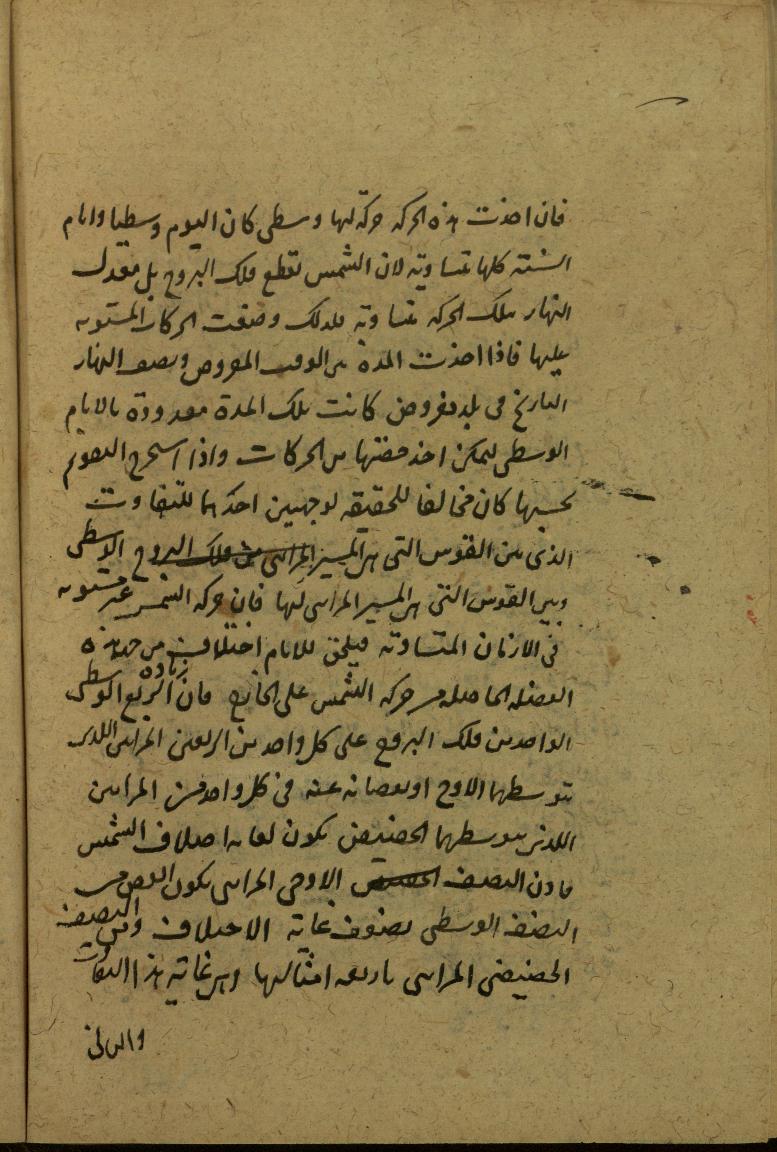 فان اخذت هذه الحركة حركة لها وسطى كان اليوم وسطيا وايام
السنة كلها متساوية لان الشمس تقطع فلك البروج بل معدل
النهار بتلك الحركة متساوية فلذلك وضعت الحركات المستوية
عليها فاذا اخذت المدة من الوقت المفروض ونصف النهار
التاريخ فى بلد مفروض كانت تلك المدة معدودة بالايام
الوسطى ليمكن اخذ حصتها من الحركات واذا استخرج التقويم
بحسبها كان مخالفا للحقيقة لوجهين احدهما للتفاوت
الذى بين القوس التى هى المسير المرائى من فلك البروج الوسطى
وبين القوس التى هى المسير المرائى لها فان حركة الشمس غير مستوية
فى الازمان المتساوية فيلحق للايام اختلاف من جهة هذه
الفضلة الحاصلة من حركة الشمس على الخارج فان زيادة الربع الوسطى
الواحد من فلك البروج على كل واحد من الربعين المرائين اللذين
يتوسطهما الاوج او نقصانه عنه فى كل واحد من المرائين
اللذين يتوسطهما الحضيض يكون لغاية اختلاف الشمس
فاذن النصف الحضيض الاوجى المرائى يكون انقص من
النصف الوسطى بضعف غاية الاختلاف وفى النصف
الحضيضى المرائى باربعة امثالها وهى غاية هذا التفاوت
والثانى